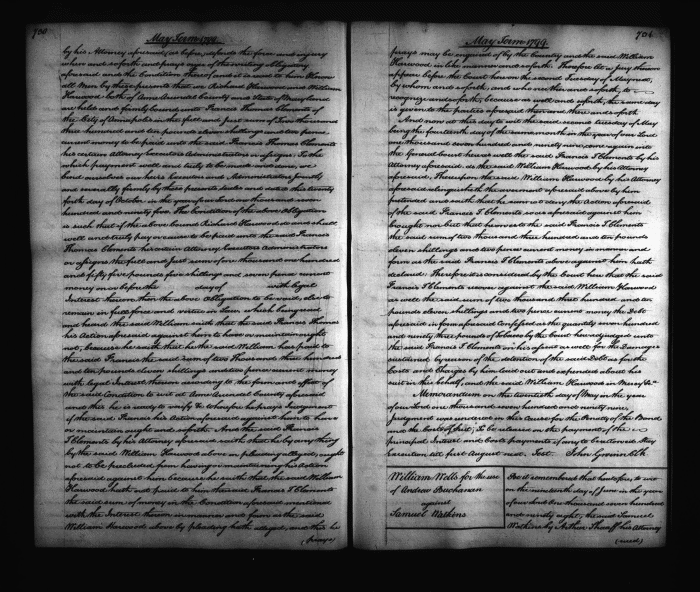 700
May Term 1799
by his Attorney aforesaid, as before, defends the force and injury
when and so forth and prays oyer of the writing Obligatory
aforesaid and the Condition thereof and it is read to him Know
all Men by these presents that we Richard Harwood and William
Harwood both of Ann Arundel County and State of Maryland
are held and firmly bound unto Francis Thomas Clements of
the City of Annapolis in the full and just sum of Two thousand
three hundred and ten pounds eleven shillings and two pence
current money to be paid unto the said Francis Thomas Clements
his certain Attorney Executors Administrators or assigns. To the
which payment well and truly to be made and done we
bind ourselves our heirs Executors and Administrators jointly
and severally firmly by these presents and dated this twenty
fourth day of October in the year of our Lord one thousand seven
hundred and ninety five. The Condition of the above Obligation
is such that if the above bound Richard Harwood and shall
well and truly pay or cause to be paid unto the said Francis
Thomas Clements his certain Attorney Executors Administrators
or assigns the full and just sum of one thousand one hundred
and fifty five pounds five shillings and seven pence current
money on or before the day of with legal
Interest thereon then the above Obligation to be void, else to
remain in full force and virtue in Law which being read
and heard the said William saith that the said Francis Thomas
his Action aforesaid against him to have or maintain ought
not, because he saith that he the said William has paid to
the said Francis the said sum of two Thousand three hundred
and ten pounds eleven shillings and two pence current money
with legal Interest thereon according to the form and effect of
the said Condition to wit at Anne Arundel County aforesaid
and this he is ready to verify Wherefore he prays Judgment
if the said Francis his Action aforesaid against him to have
or maintain ought and so forth. And the said Francis
T Clements by his Attorney aforesaid saith that he by any thing
by the said William Harwood above in pleading alledged, ought
not to be precluded from having or maintaining his Action
aforesaid against him because he saith that the said William
Harwood hath not paid to him the said Francis T Clements
the said sum of money in the Condition aforesaid mentioned
with the Interest thereon in manner and form as the said
William Harwood above by pleading hath alledged, and this he
(prays)
701
May Term 1799
prays may be enquired of by the Country and the said William
Harwood in like manner and so forth. Therefore let a jury thereon
appear before the Court here on the second Tuesday of May next,
by whom and so forth, and who neither and so forth, to
recognize and so forth, because as well and so forth the same day
is given to the parties aforesaid then and there and so forth
And now at this day to wit the said second tuesday of May
being the fourteenth day of the same month in the year of our Lord
one thousand seven hundred and ninety nine come again into
the General Court here as well the said Francis T Clements by his
Attorney aforesaid as the said William Harwood by his Attorney
aforesaid, Thereupon the said William Harwood by his Attorney
aforesaid relinquisheth the averment aforesaid above by him
pretended and saith that he cannot deny the Action aforesaid
of the said Francis T Clements as aforesaid against him
brought nor but that he owes to the said Francis T Clements
the said sum of two thousand three hundred and ten pounds
eleven shillings and two pence current money in manner and
form as the said Francis T Clements above against him hath
declared. Therefore it is considered by the Court here that the said
Francis T Clements recover against the said William Harwood
as well the said sum of two thousand three hundred and ten
pounds eleven shillings and two pence current money the Debt
aforesaid in form aforesaid confessed as the quantity seven hundred
and ninety three pounds of Tobacco by the Court here adjudged unto
the said Francis T Clements on his assent as well for the Damages
sustained by reason of the detention of the said Debt as for the
Costs and Charges by him laid out and expended about his
suit in this behalf, and the said William Harwood in Mercy &c.
Memorandum on the twentieth day of May in the year
of our Lord one thousand seven hundred and ninety nine,
Judgment was entered in this Cause for the Penalty of the Bond
and the Costs of Suit, To be released on the payment of the
principal Interest and Costs payments if any to be allowed. Stay
Execution till first August next. Test. John Gwinn Clk.
William Wells for the use
of Andrew Buchanan
against
Samuel Watkins
Be it remembered that heretofore, to wit
on the nineteenth day of June in the year
of our Lord one thousand seven hundred
and ninety eight, the said Samuel
Watkins by Arthur Shaaff his Attorney
(sued)